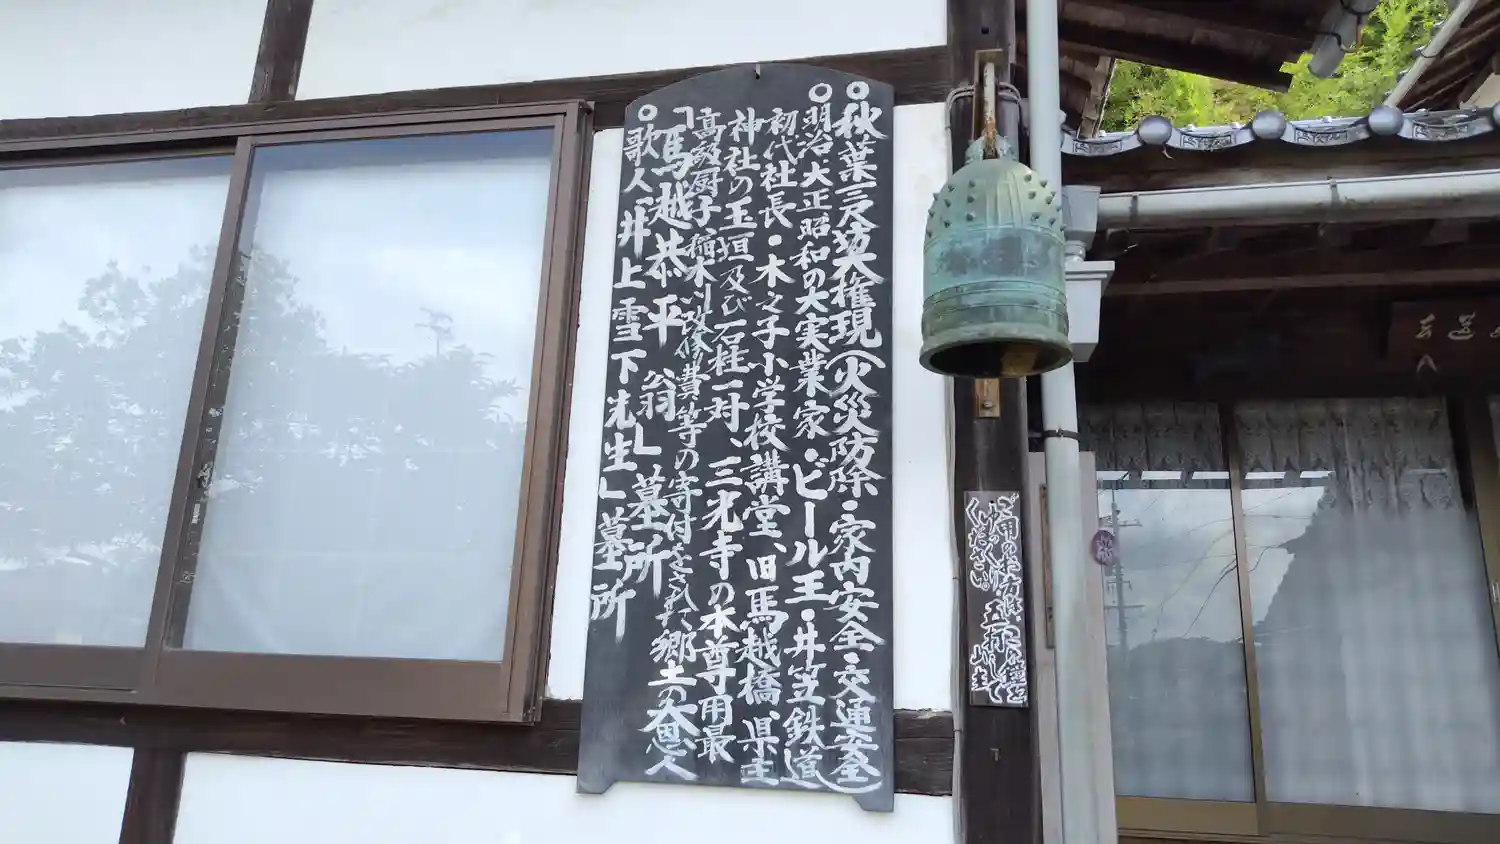 ○秋葉三尺坊大権現(火災防除・家内安全・交通安全)
○明治・大正昭和の大実業家・ビール王・井笠鉄道
初代社長・木之子小学校講堂、旧馬越橋、県主
神社の玉垣及び石柱一対、三光寺の本尊用最
高級厨子、稲木川改修費等の寄付をされた、郷土の大恩人
「馬越恭平 翁」墓所
○歌人「井上雪下先生」墓所
ご用のお方はこの鐘を
ゆっくり、五、六打して
ください。